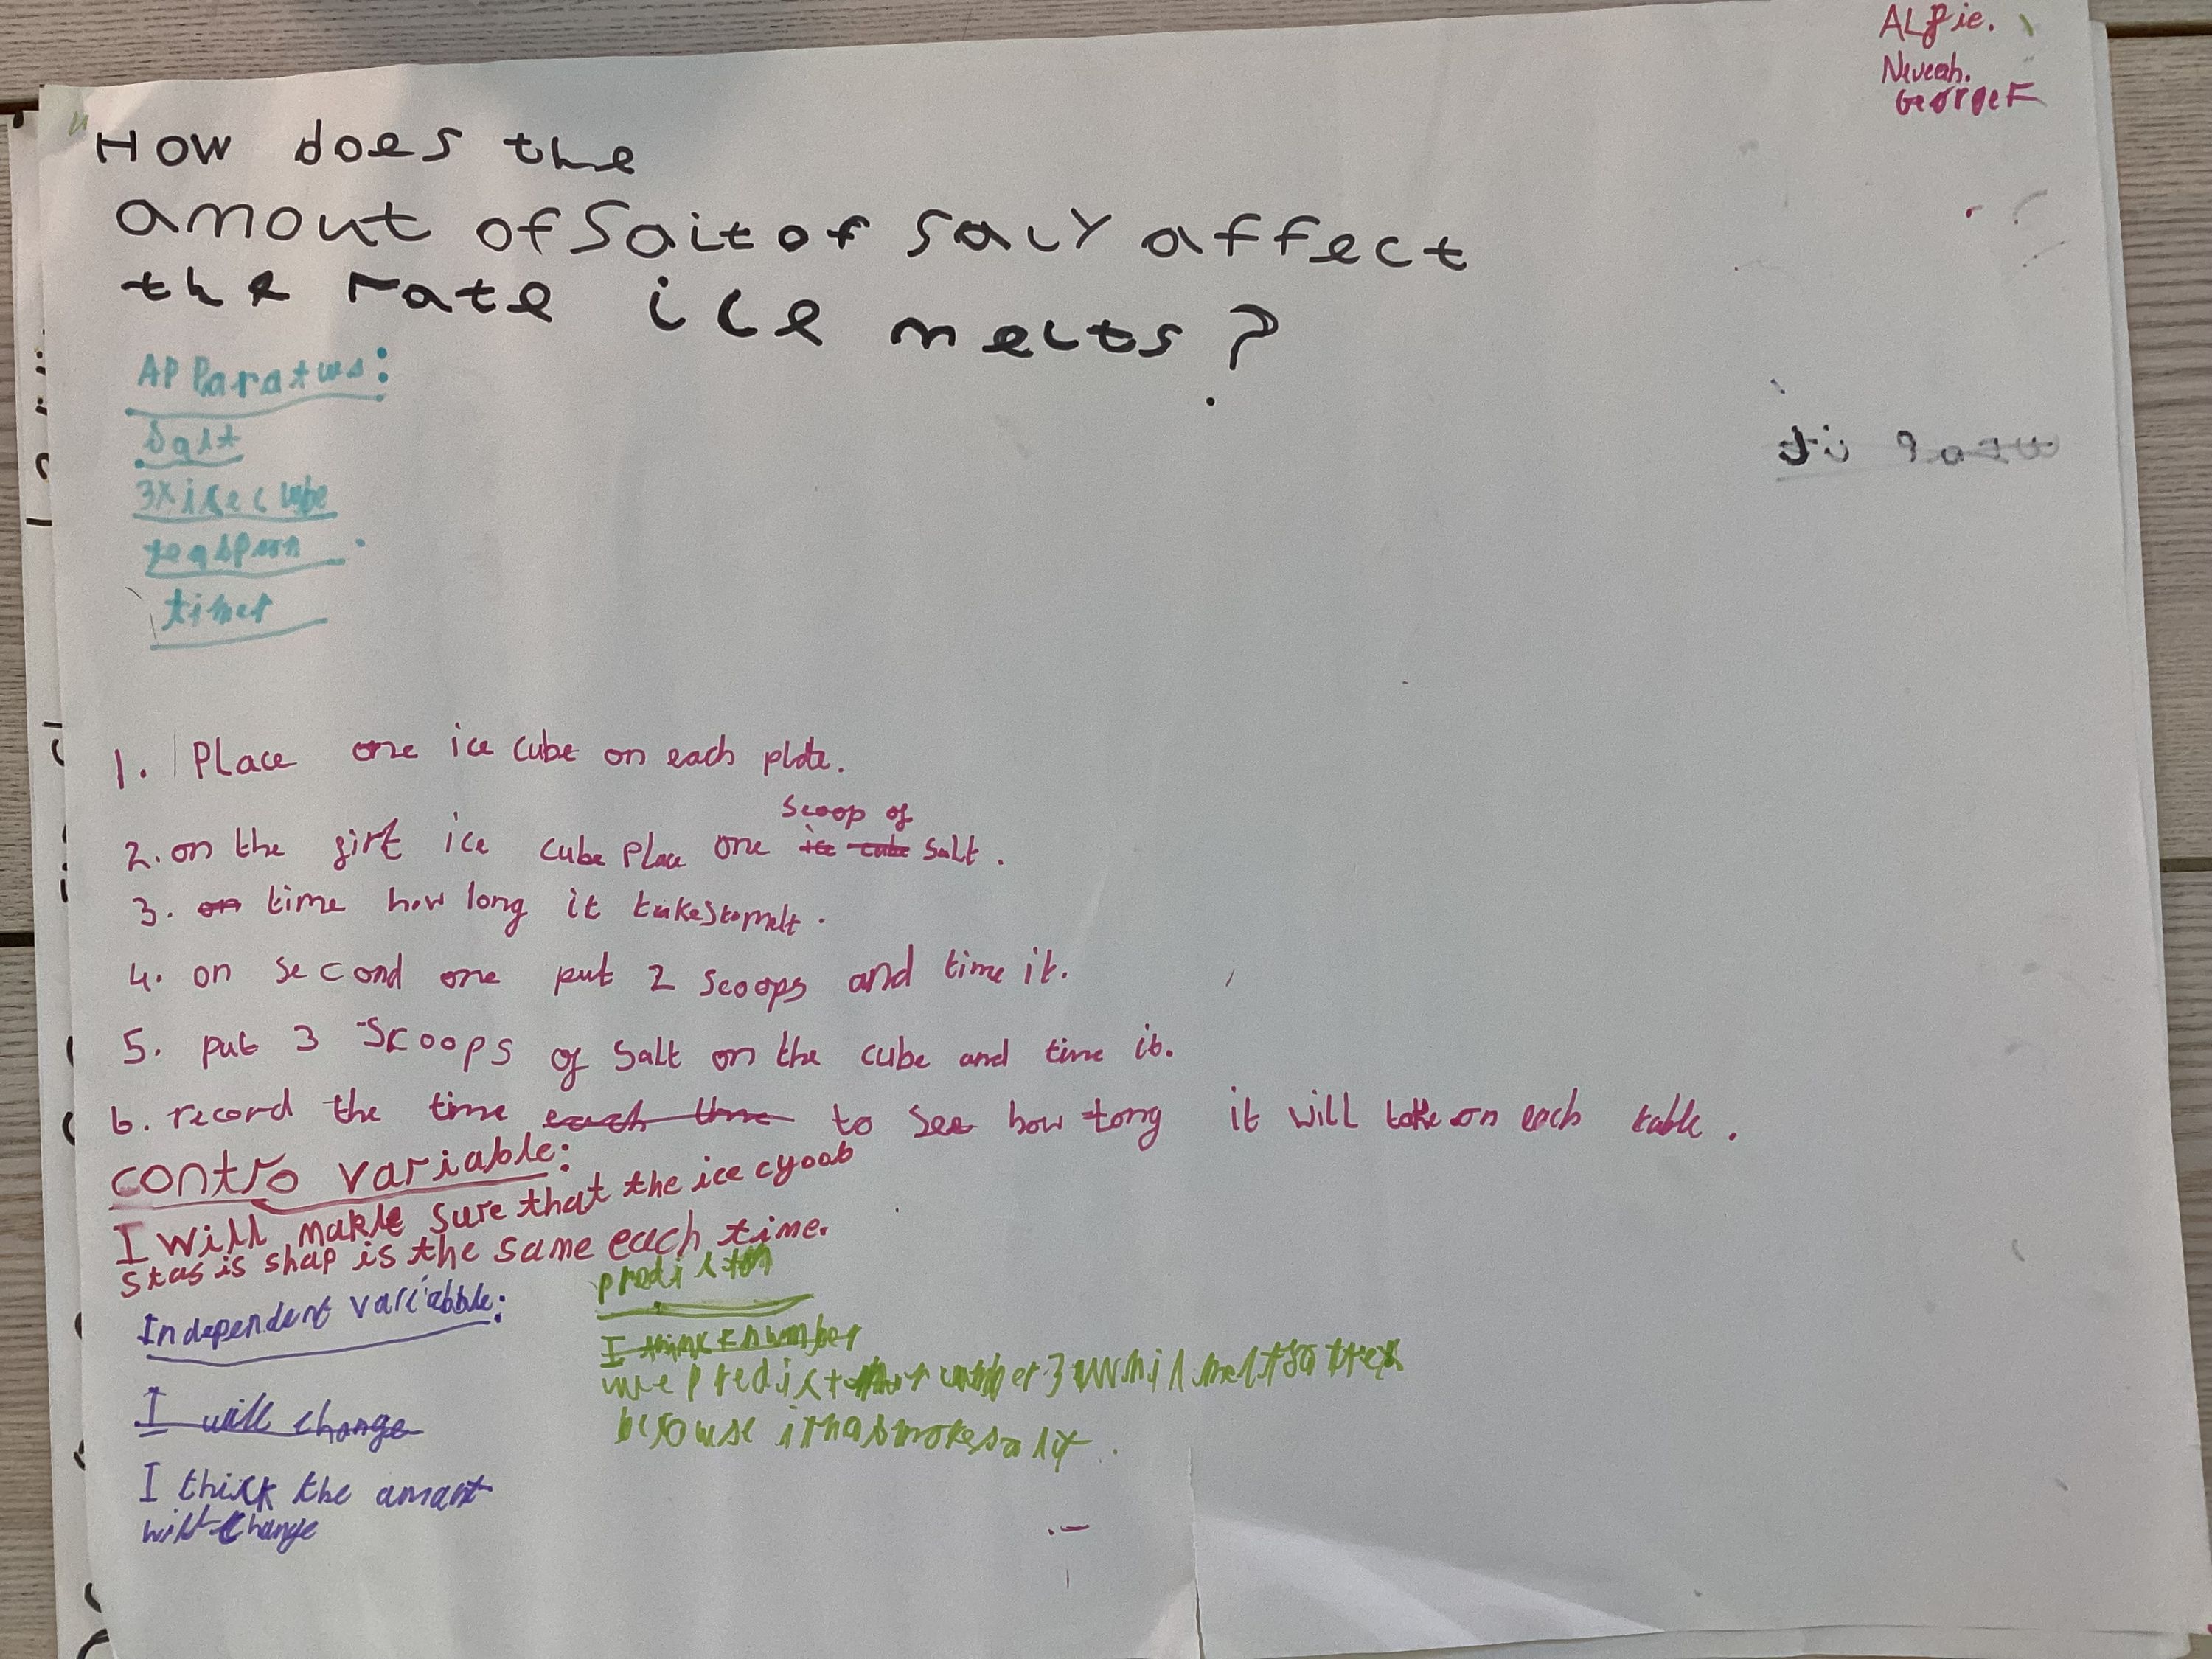 ALfie.
Neveah.
George F
How does the
amout of Sait of saly affect
the rate ice melts?
Apparatus:
Salt
3x ice cube
teaspoon
timer
1. Place one ice cube on each plate.
scoop of
2. on the firt ice cube place one ice cube salt.
3. on time how long it takes to melt.
4. on second one put 2 scoops and time it.
5. put 3 scoops of salt on the cube and time it.
6. record the time each time to see how long it will take on each table.
contro variable:
I will makle sure that the ice cyoob
stas is shap is the same each time.
Independent variabble:
I will change
I thick the amant
will change
prediction
I think number
we predict number 3 will melt
because it has more salt.